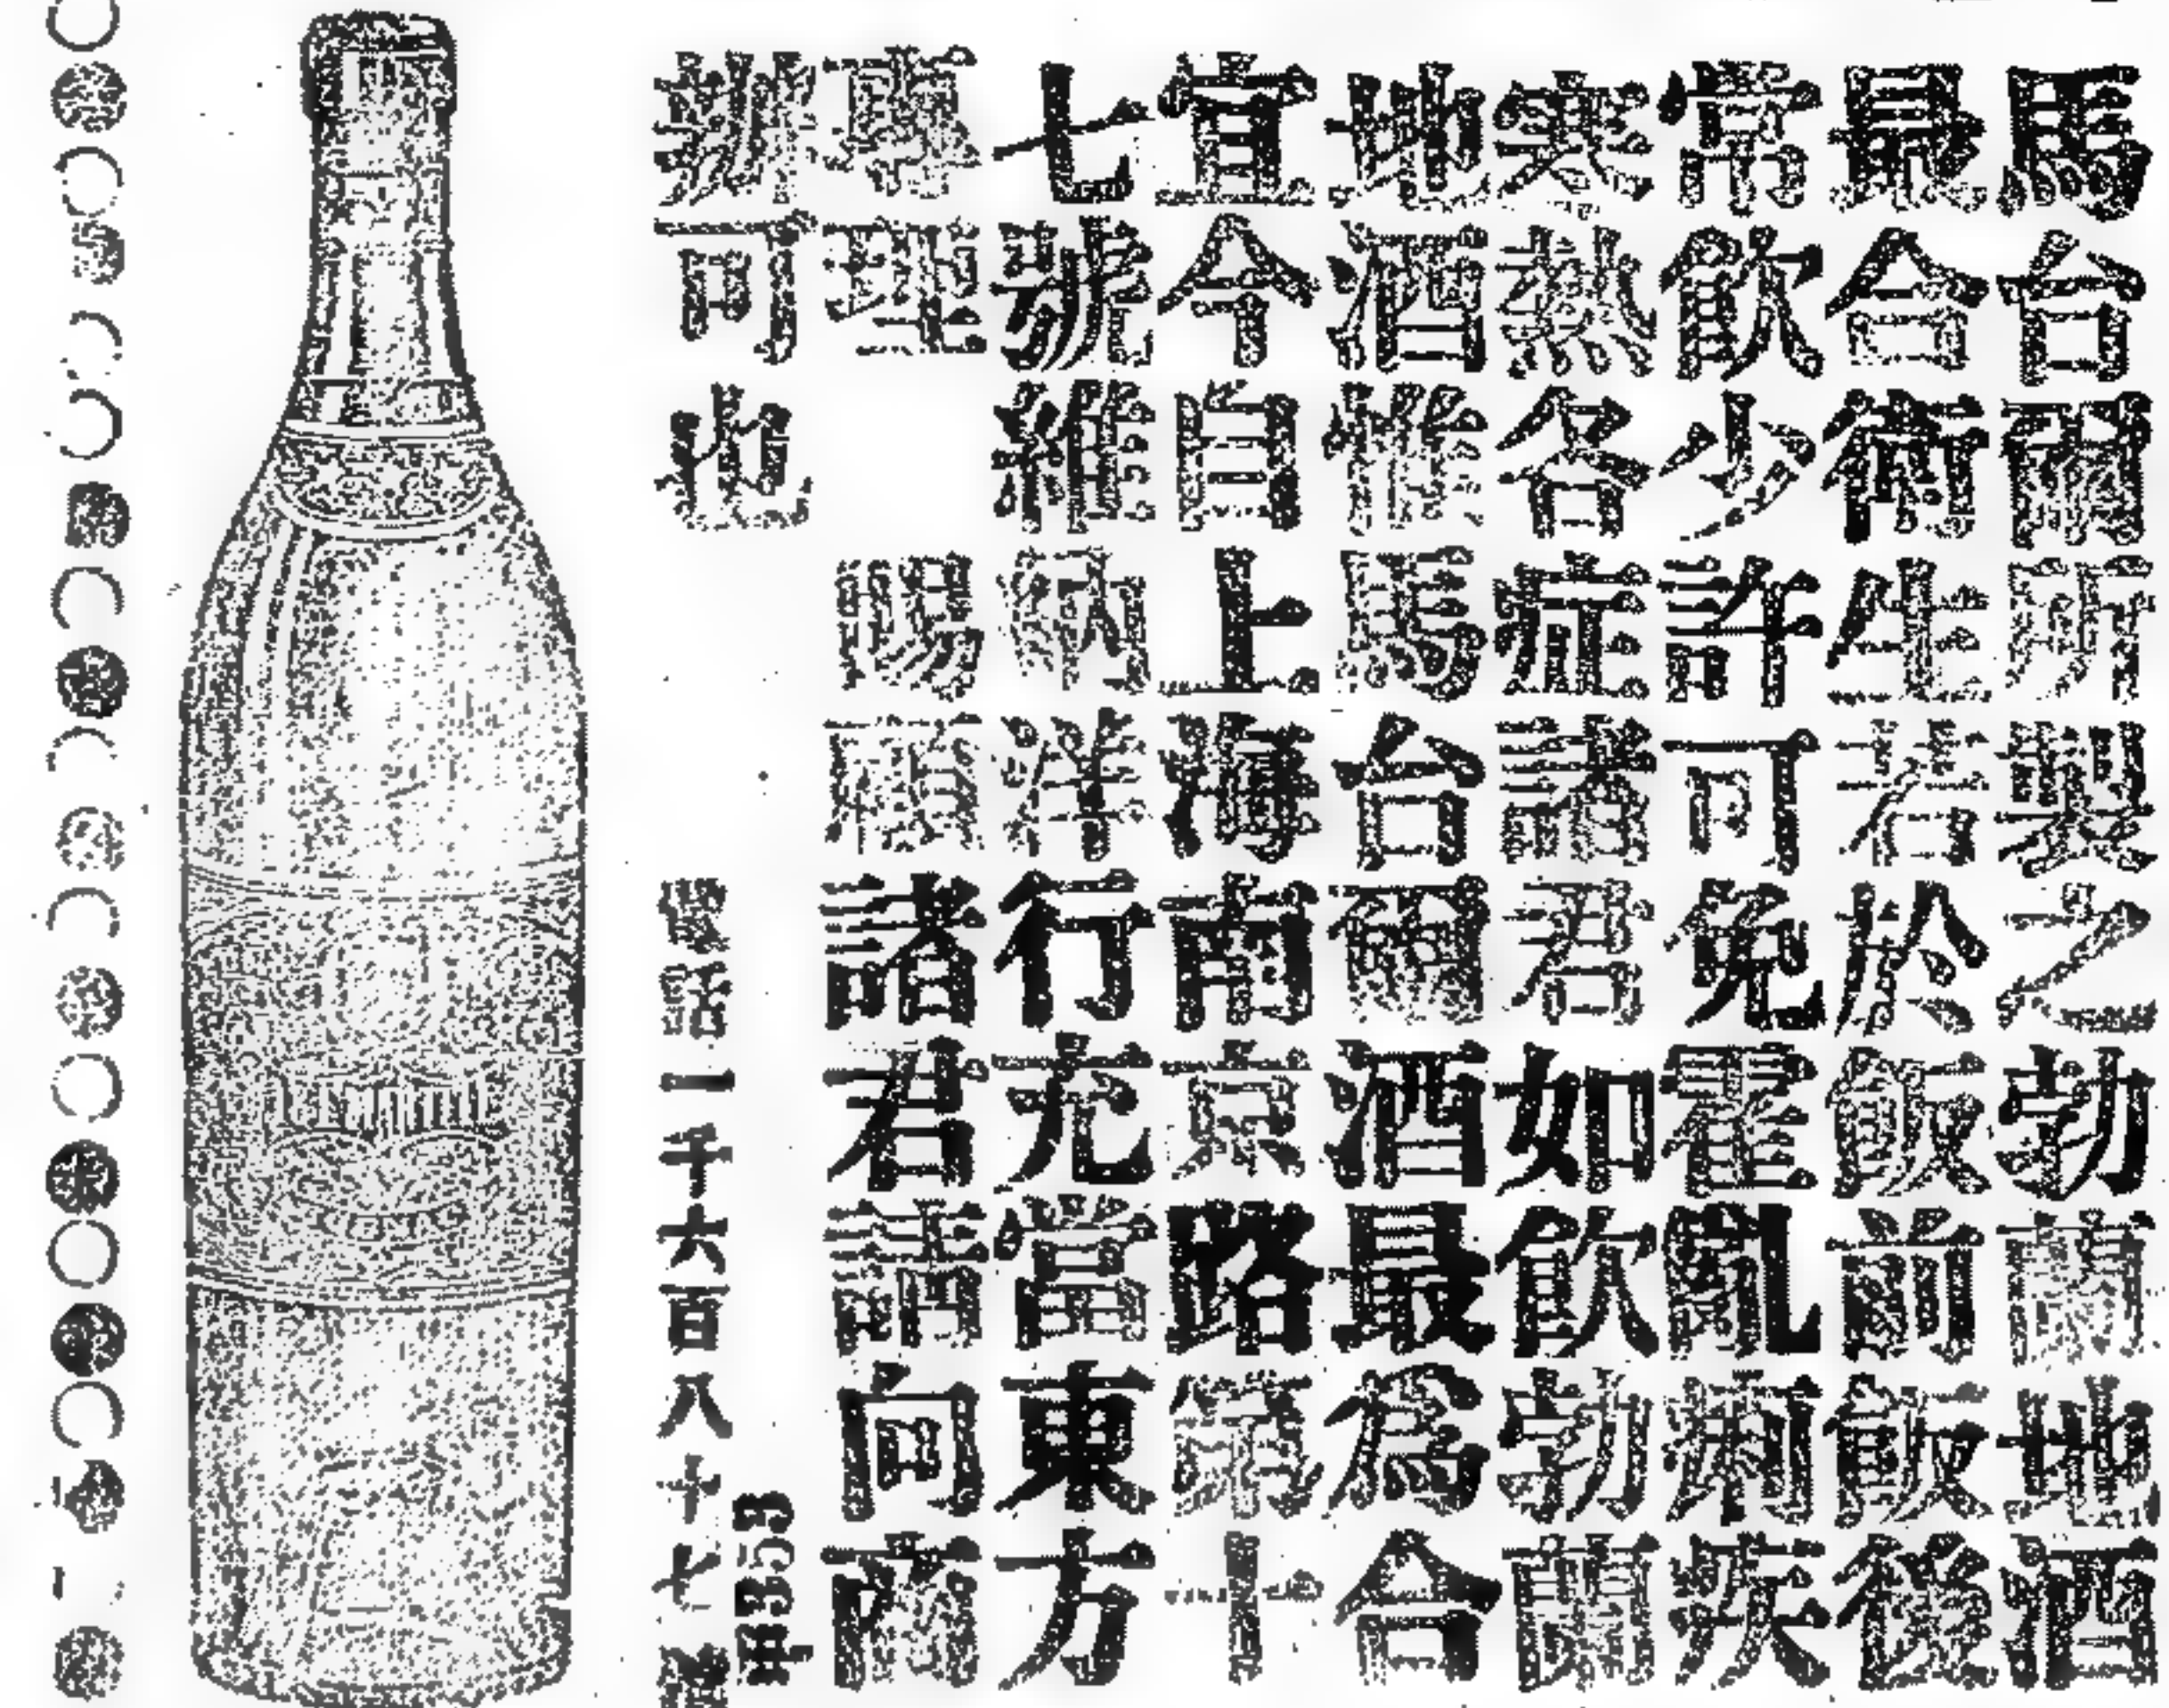 馬台爾所製之勃蘭地酒
最合衛生若於飯前飯後
常飲少許可免霍亂痢疾
寒熱各症諸君如飲勃蘭
地酒惟馬台爾酒最為合
宜今自上海南京路第十
七號維納洋行充當東方
專理 賜顧諸君請向商
辦可也
電話一千六百八十七號
申353